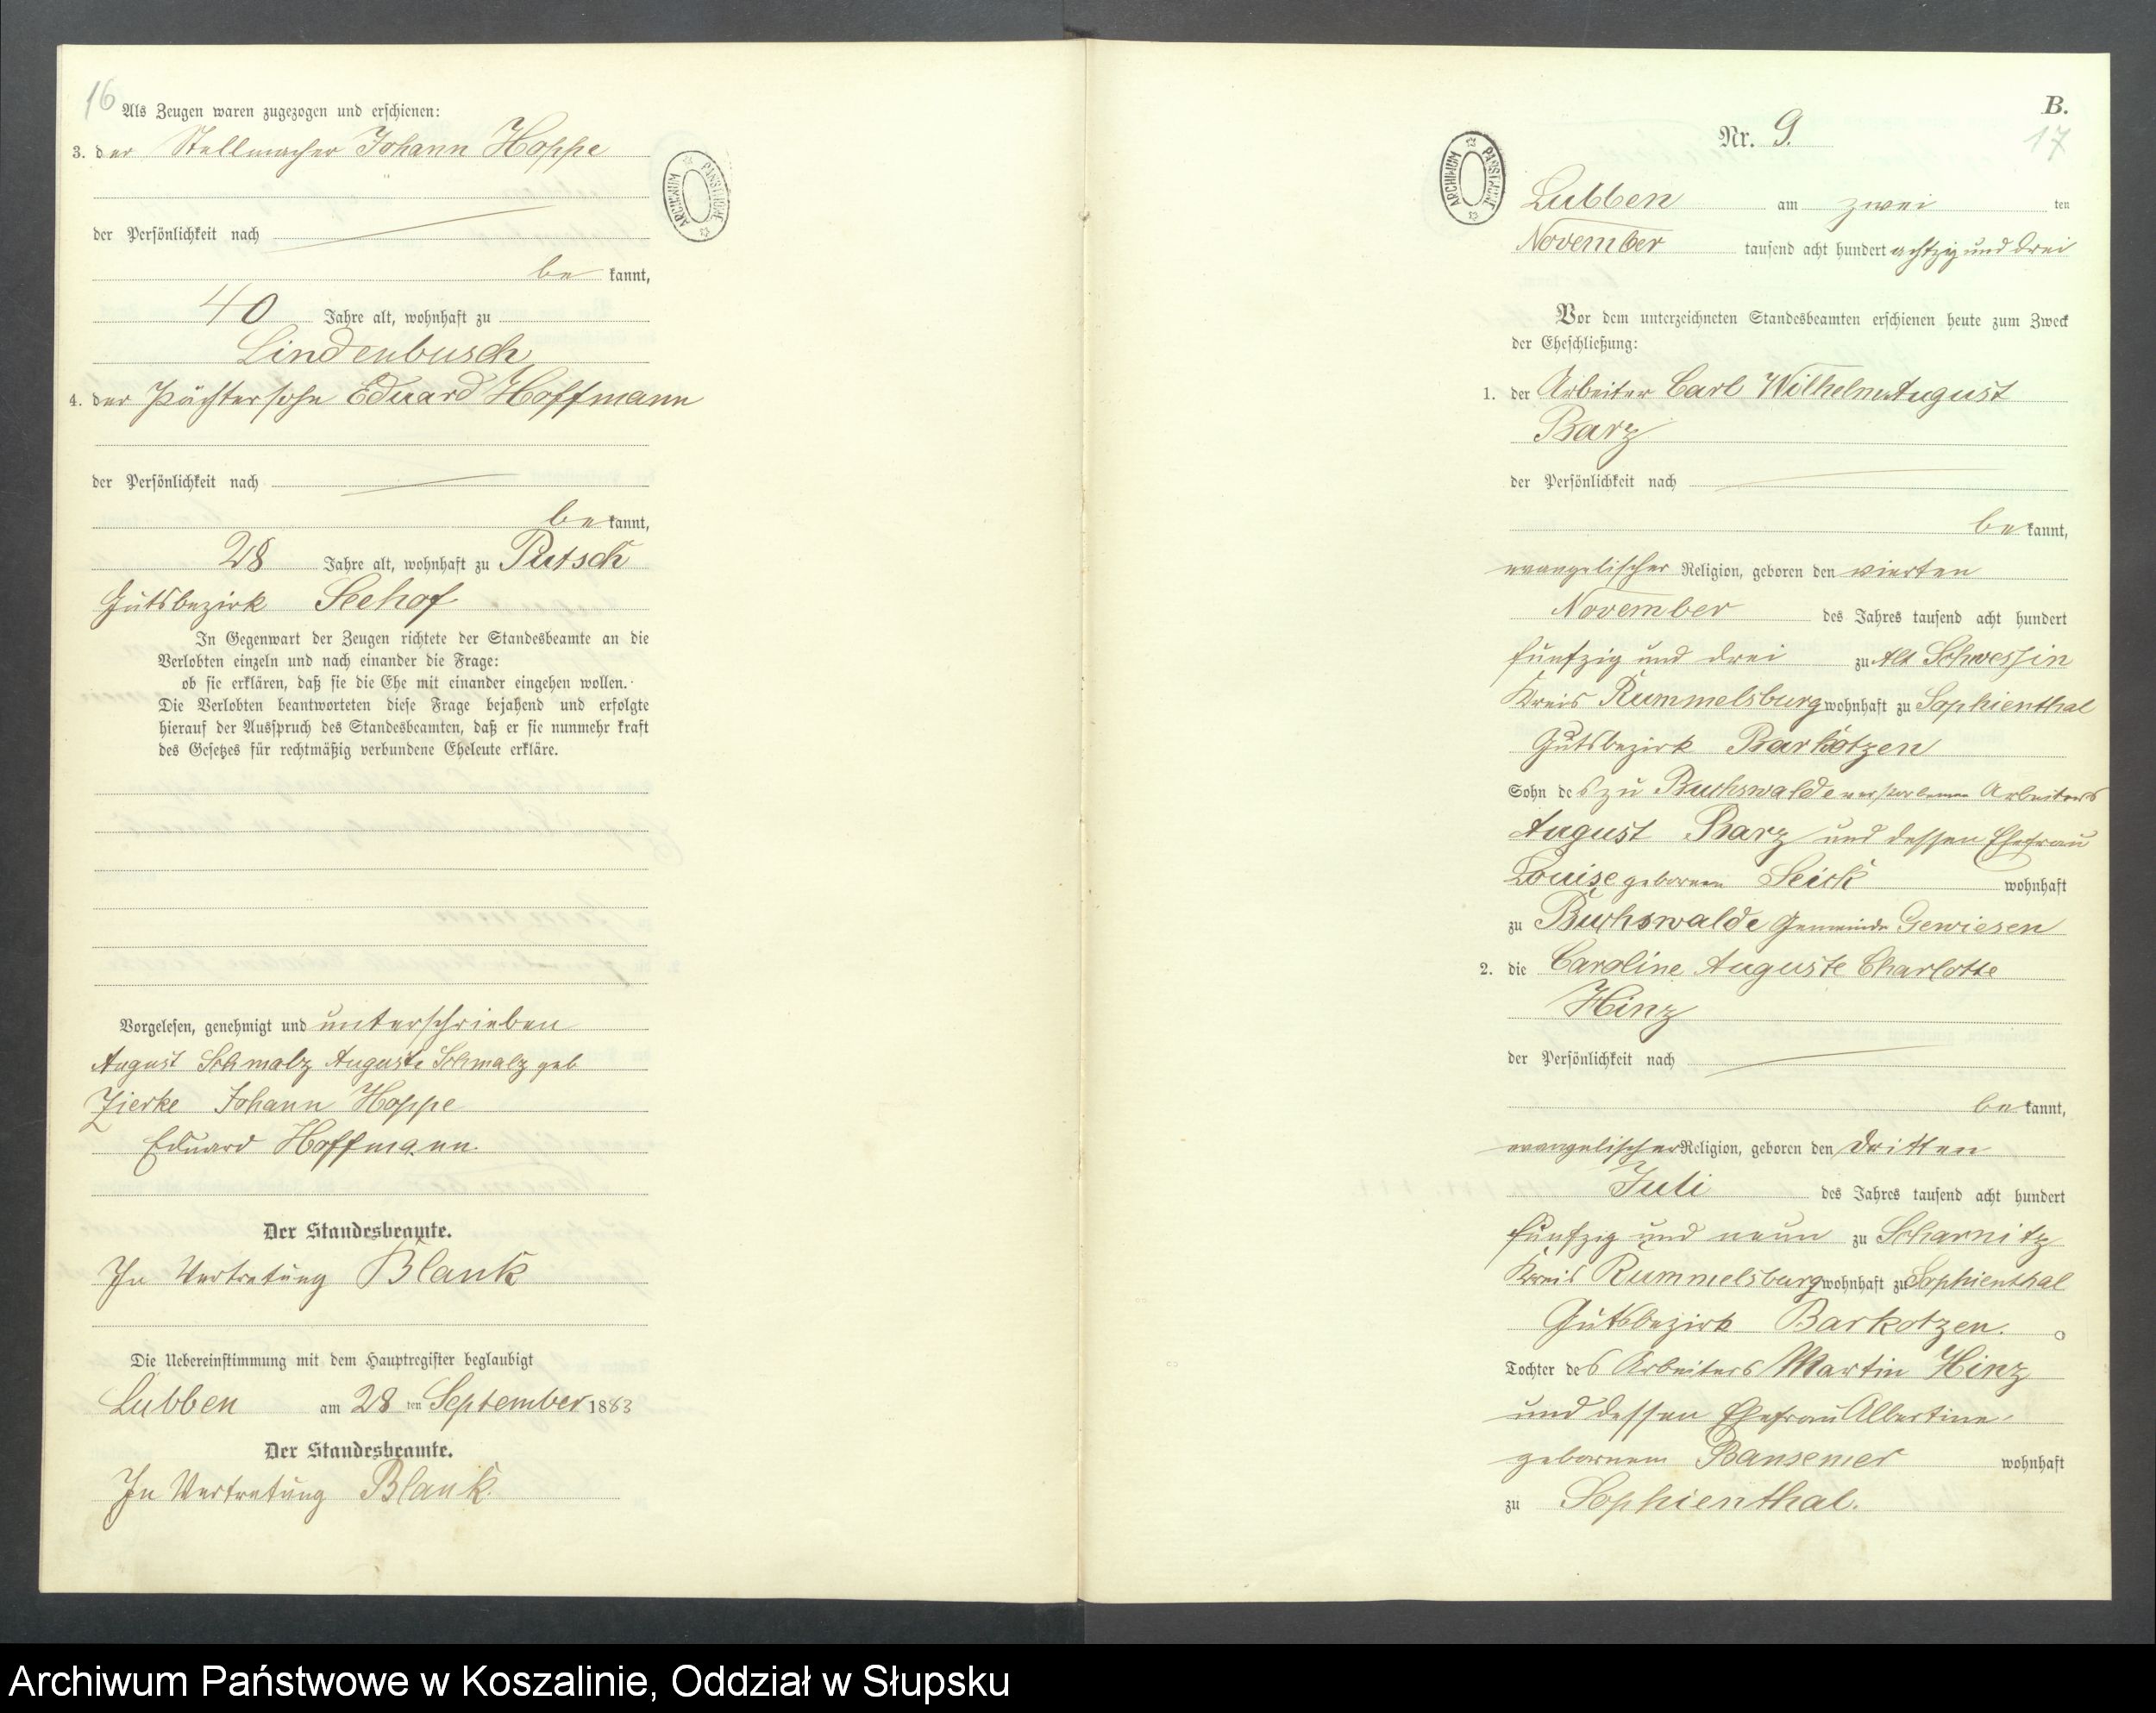 16
Als Zeugen waren zugezogen und erschienen:
3. der Stellmacher Johann Hoppe
der Persönlichkeit nach
be kannt,
40 Jahre alt, wohnhaft zu
Lindenbusch
4. der Pächtersohn Eduard Hoffmann
der Persönlichkeit nach
be kannt,
28 Jahre alt, wohnhaft zu Putsch
Gutsbezirk Seehof
In Gegenwart der Zeugen richtete der Standesbeamte an die
Verlobten einzeln und nach einander die Frage:
ob sie erklären, daß sie die Ehe mit einander eingehen wollen.
Die Verlobten beantworteten diese Frage bejahend und erfolgte
hierauf der Ausspruch des Standesbeamten, daß er sie nunmehr kraft
des Gesetzes für rechtmäßig verbundene Eheleute erkläre.
Vorgelesen, genehmigt und unterschrieben
August Schmalz Auguste Schmalz geb
Zierke Johann Hoppe
Eduard Hoffmann.
Der Standesbeamte.
In Vertretung Blank
Die Uebereinstimmung mit dem Hauptregister beglaubigt
Lubben am 28 ten September 1883
Der Standesbeamte.
In Vertretung Blank.
ARCHIWUM PAŃSTWOWE
B.
17
Nr. 9.
ARCHIWUM PAŃSTWOWE
Lubben am zwei ten
November tausend acht hundert achtzig und drei
Vor dem unterzeichneten Standesbeamten erschienen heute zum Zweck
der Eheschließung:
1. der Arbeiter Carl Wilhelm August
Barz
der Persönlichkeit nach
be kannt,
evangelischer Religion, geboren den vierten
November des Jahres tausend acht hundert
fünfzig und drei zu Alt Schwessin
Kreis Rummelsburg wohnhaft zu Sophienthal
Gutsbezirk Barkotzen
Sohn des zu Buchswalde verstorbenen Arbeiters
August Barz und dessen Ehefrau
Louise geborenen Seick wohnhaft
zu Buchswalde Gemeinde Gewiesen
2. die Caroline Auguste Charlotte
Hinz
der Persönlichkeit nach
be kannt,
evangelischer Religion, geboren den dritten
Juli des Jahres tausend acht hundert
fünfzig und neun zu Scharnitz
Kreis Rummelsburg wohnhaft zu Sophienthal
Gutsbezirk Barkotzen.
Tochter des Arbeiters Martin Hinz
und dessen Ehefrau Albertine
geborenen Bansemer wohnhaft
zu Sophienthal.
Archiwum Państwowe w Koszalinie, Oddział w Słupsku